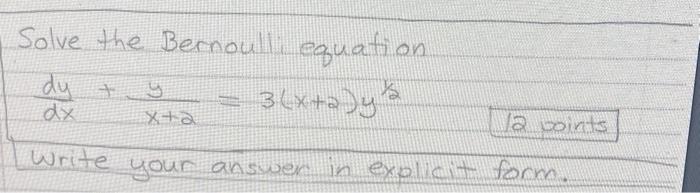 Solve the Bernoulli equation
dy/dx + y/x+2 = 3(x+2)y^1/2
12 points
Write your answer in explicit form.